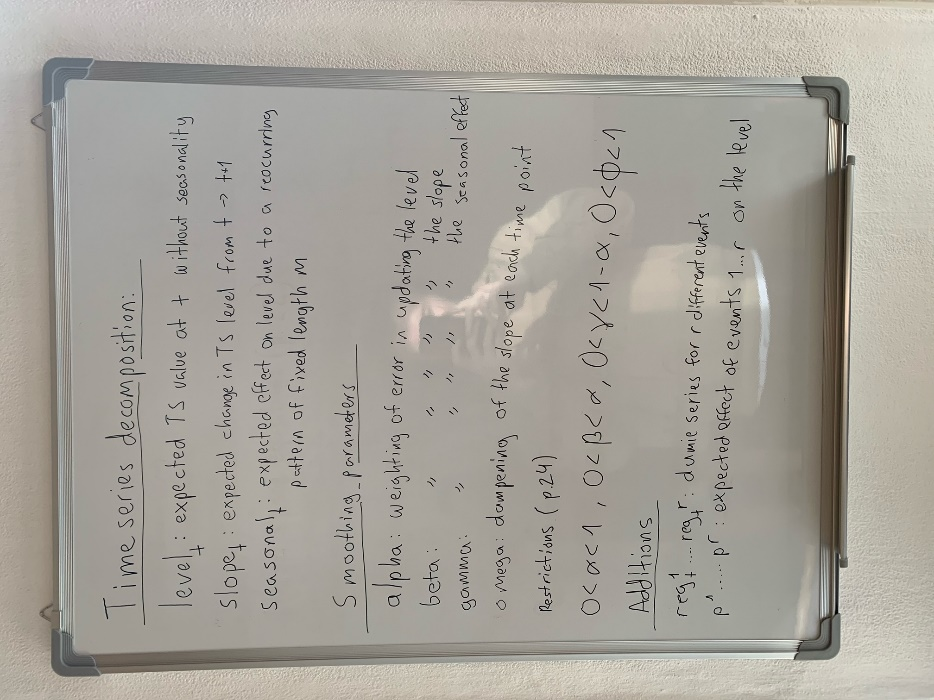 Time series decomposition:
level_t : expected TS value at t without seasonality
slope_t : expected change in TS level from t -> t+1
seasonal_t : expected effect on level due to a reocurring
pattern of fixed length m
Smoothing-parameters
alpha: weighting of error in updating the level
beta: " " " " " the slope
gamma: " " " " " the seasonal effect
omega: dampening of the slope at each time point
Restrictions (p.24)
0<α<1, 0<β<α, 0<γ<1-α, 0<ϕ<1
Additions
reg_t^1 ... reg_t^r : dumie series for r different events
p^1 ..... p^r : expected effect of events 1...r on the level